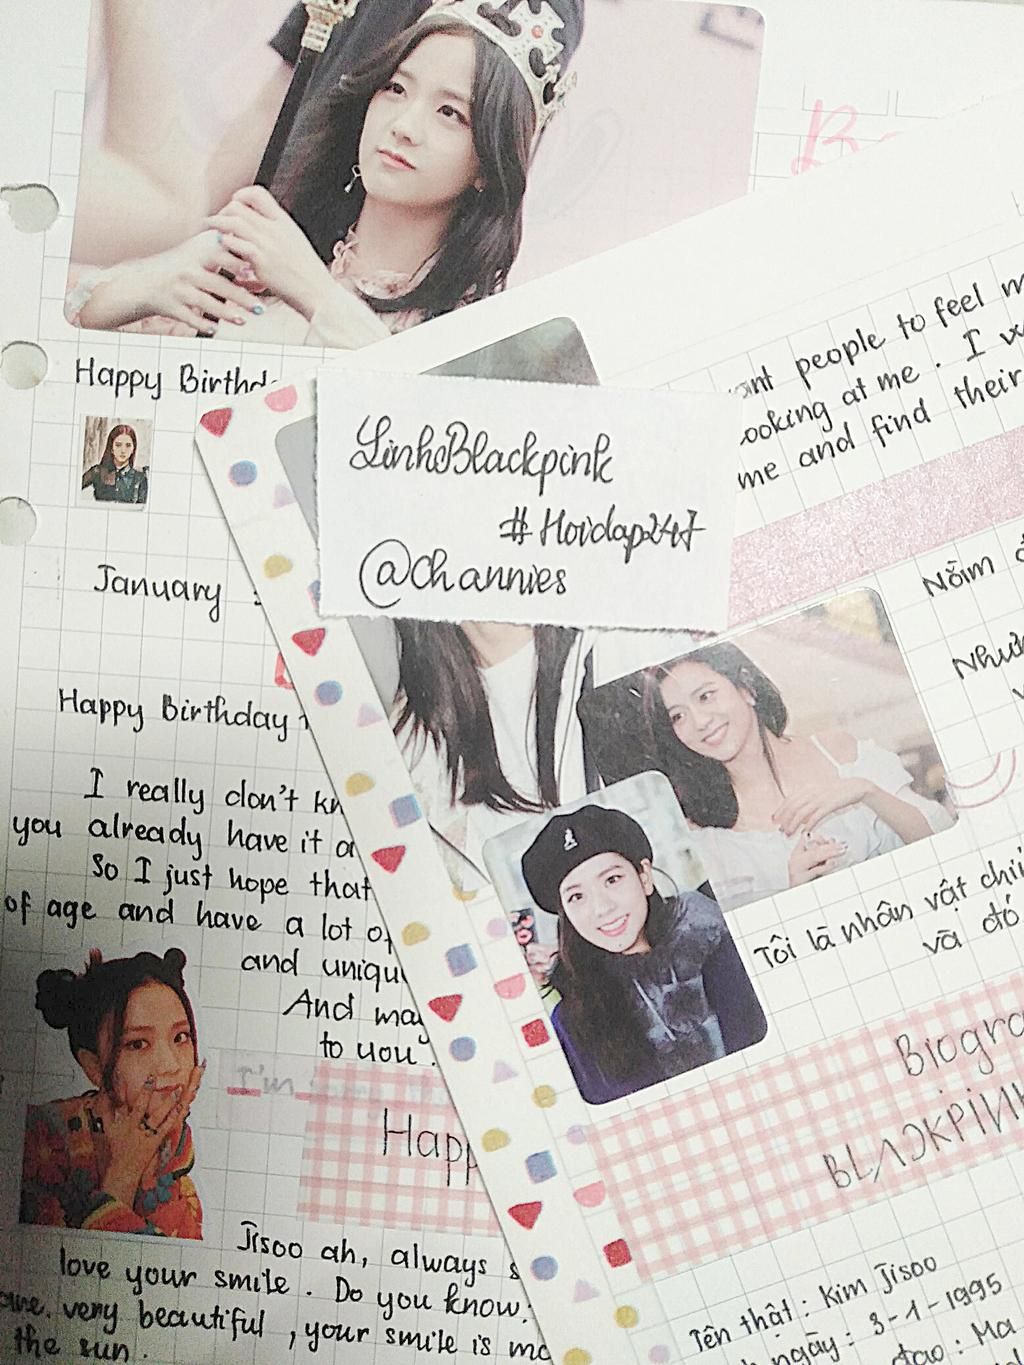 Happy Birthd
January
Happy Birthday
I really don't kn
you already have it a
So I just hope that
of age and have a lot of
and uniqu
And may
to you
I'm
Happ
Jisoo ah, always s
love your smile. Do you know:
very beautiful, your smile is mo
the sun.
LinhBlackpink
#Hoidap247
@channies
ant people to feel m
ooking at me. I w
me and find their
Năm
Như
Tôi là nhân vật chí
và đó
Biogra
BLACKPINK
Tên thật: Kim Jisoo
ngày: 3-1-1995
đạo: Ma